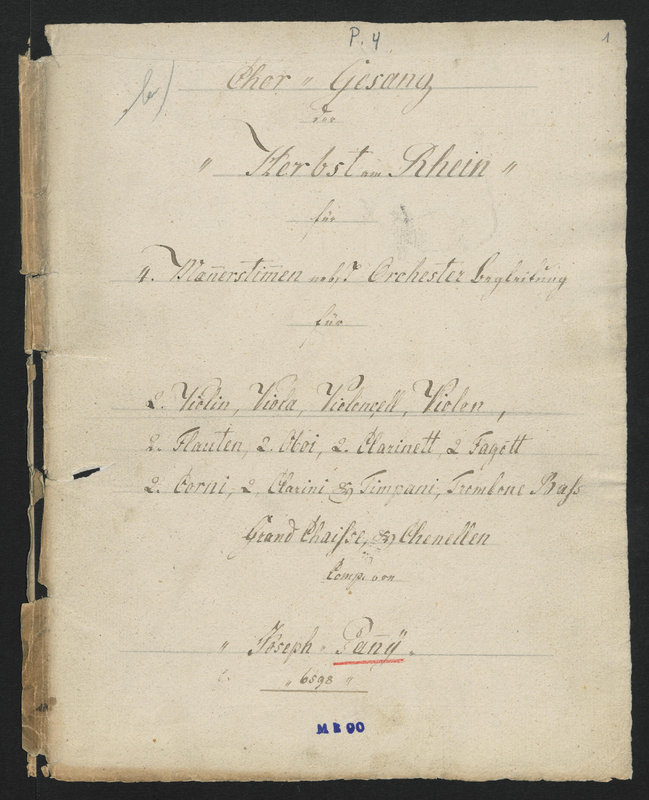 P. 4
1
b)
Chor " Gesang
der
" Herbst am Rhein "
für
4. Man̄erstim̄en nebst Orchester Begleitung
für
2. Violin, Viola, Violoncell, Violon,
2. Flauten, 2. Oboi, 2. Clarinett, 2 Fagott
2. Corni, 2. Clarini & Timpani, Trombone Bass
Grand Chaisse, & Chenellen
Comp. von
" Joseph " Pan̄y ".
" 6598 "
M E 00